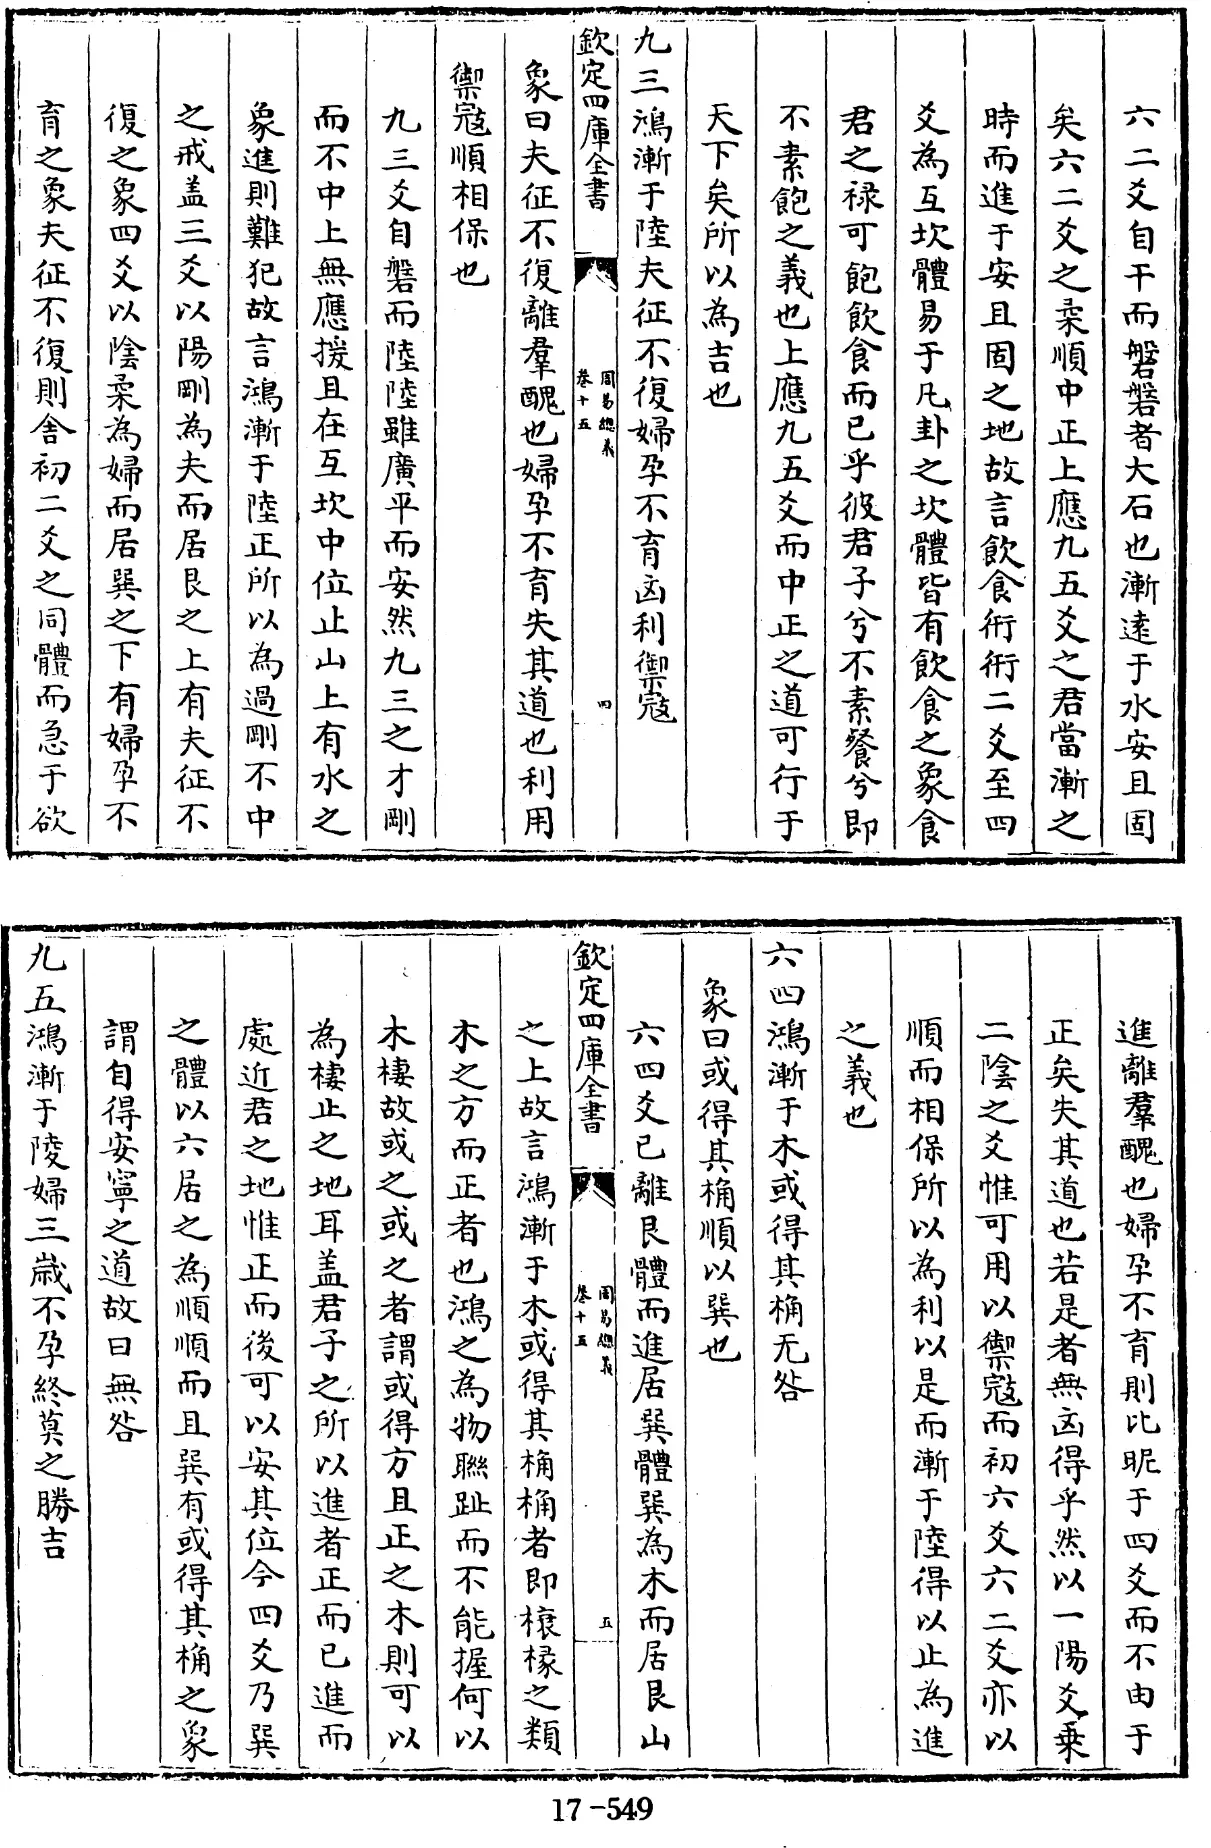 六二爻自干而磐磐者大石也漸遠于水安且固
矣六二爻之柔順中正上應九五爻之君當漸之
時而進于安且固之地故言飲食衎衎二爻至四
爻為互坎體易于凡卦之坎體皆有飲食之象食
君之祿可飽飲食而已乎彼君子兮不素餐兮即
不素飽之義也上應九五爻而中正之道可行于
天下矣所以為吉也
九三鴻漸于陸夫征不復婦孕不育凶利禦寇
欽定四庫全書
周易總義
卷十五
四
象曰夫征不復離羣醜也婦孕不育失其道也利用
禦寇順相保也
九三爻自磐而陸陸雖廣平而安然九三之才剛
而不中上無應援且在互坎中位止山上有水之
象進則難犯故言鴻漸于陸正所以為過剛不中
之戒盖三爻以陽剛為夫而居艮之上有夫征不
復之象四爻以陰柔為婦而居巽之下有婦孕不
育之象夫征不復則舍初二爻之同體而急于欲
進離羣醜也婦孕不育則比昵于四爻而不由于
正矣失其道也若是者無凶得乎然以一陽爻乗
二陰之爻惟可用以禦寇而初六爻六二爻亦以
順而相保所以為利以是而漸于陸得以止為進
之義也
六四鴻漸于木或得其桷无咎
象曰或得其桷順以巽也
六四爻已離艮體而進居巽體巽為木而居艮山
欽定四庫全書
周易總義
卷十五
五
之上故言鴻漸于木或得其桷桷者即榱椽之類
木之方而正者也鴻之為物聯趾而不能握何以
木棲故或之或之者謂或得方且正之木則可以
為棲止之地耳盖君子之所以進者正而已進而
處近君之地惟正而後可以安其位今四爻乃巽
之體以六居之為順順而且巽有或得其桷之象
謂自得安寧之道故曰無咎
九五鴻漸于陵婦三歲不孕終莫之勝吉
17-549